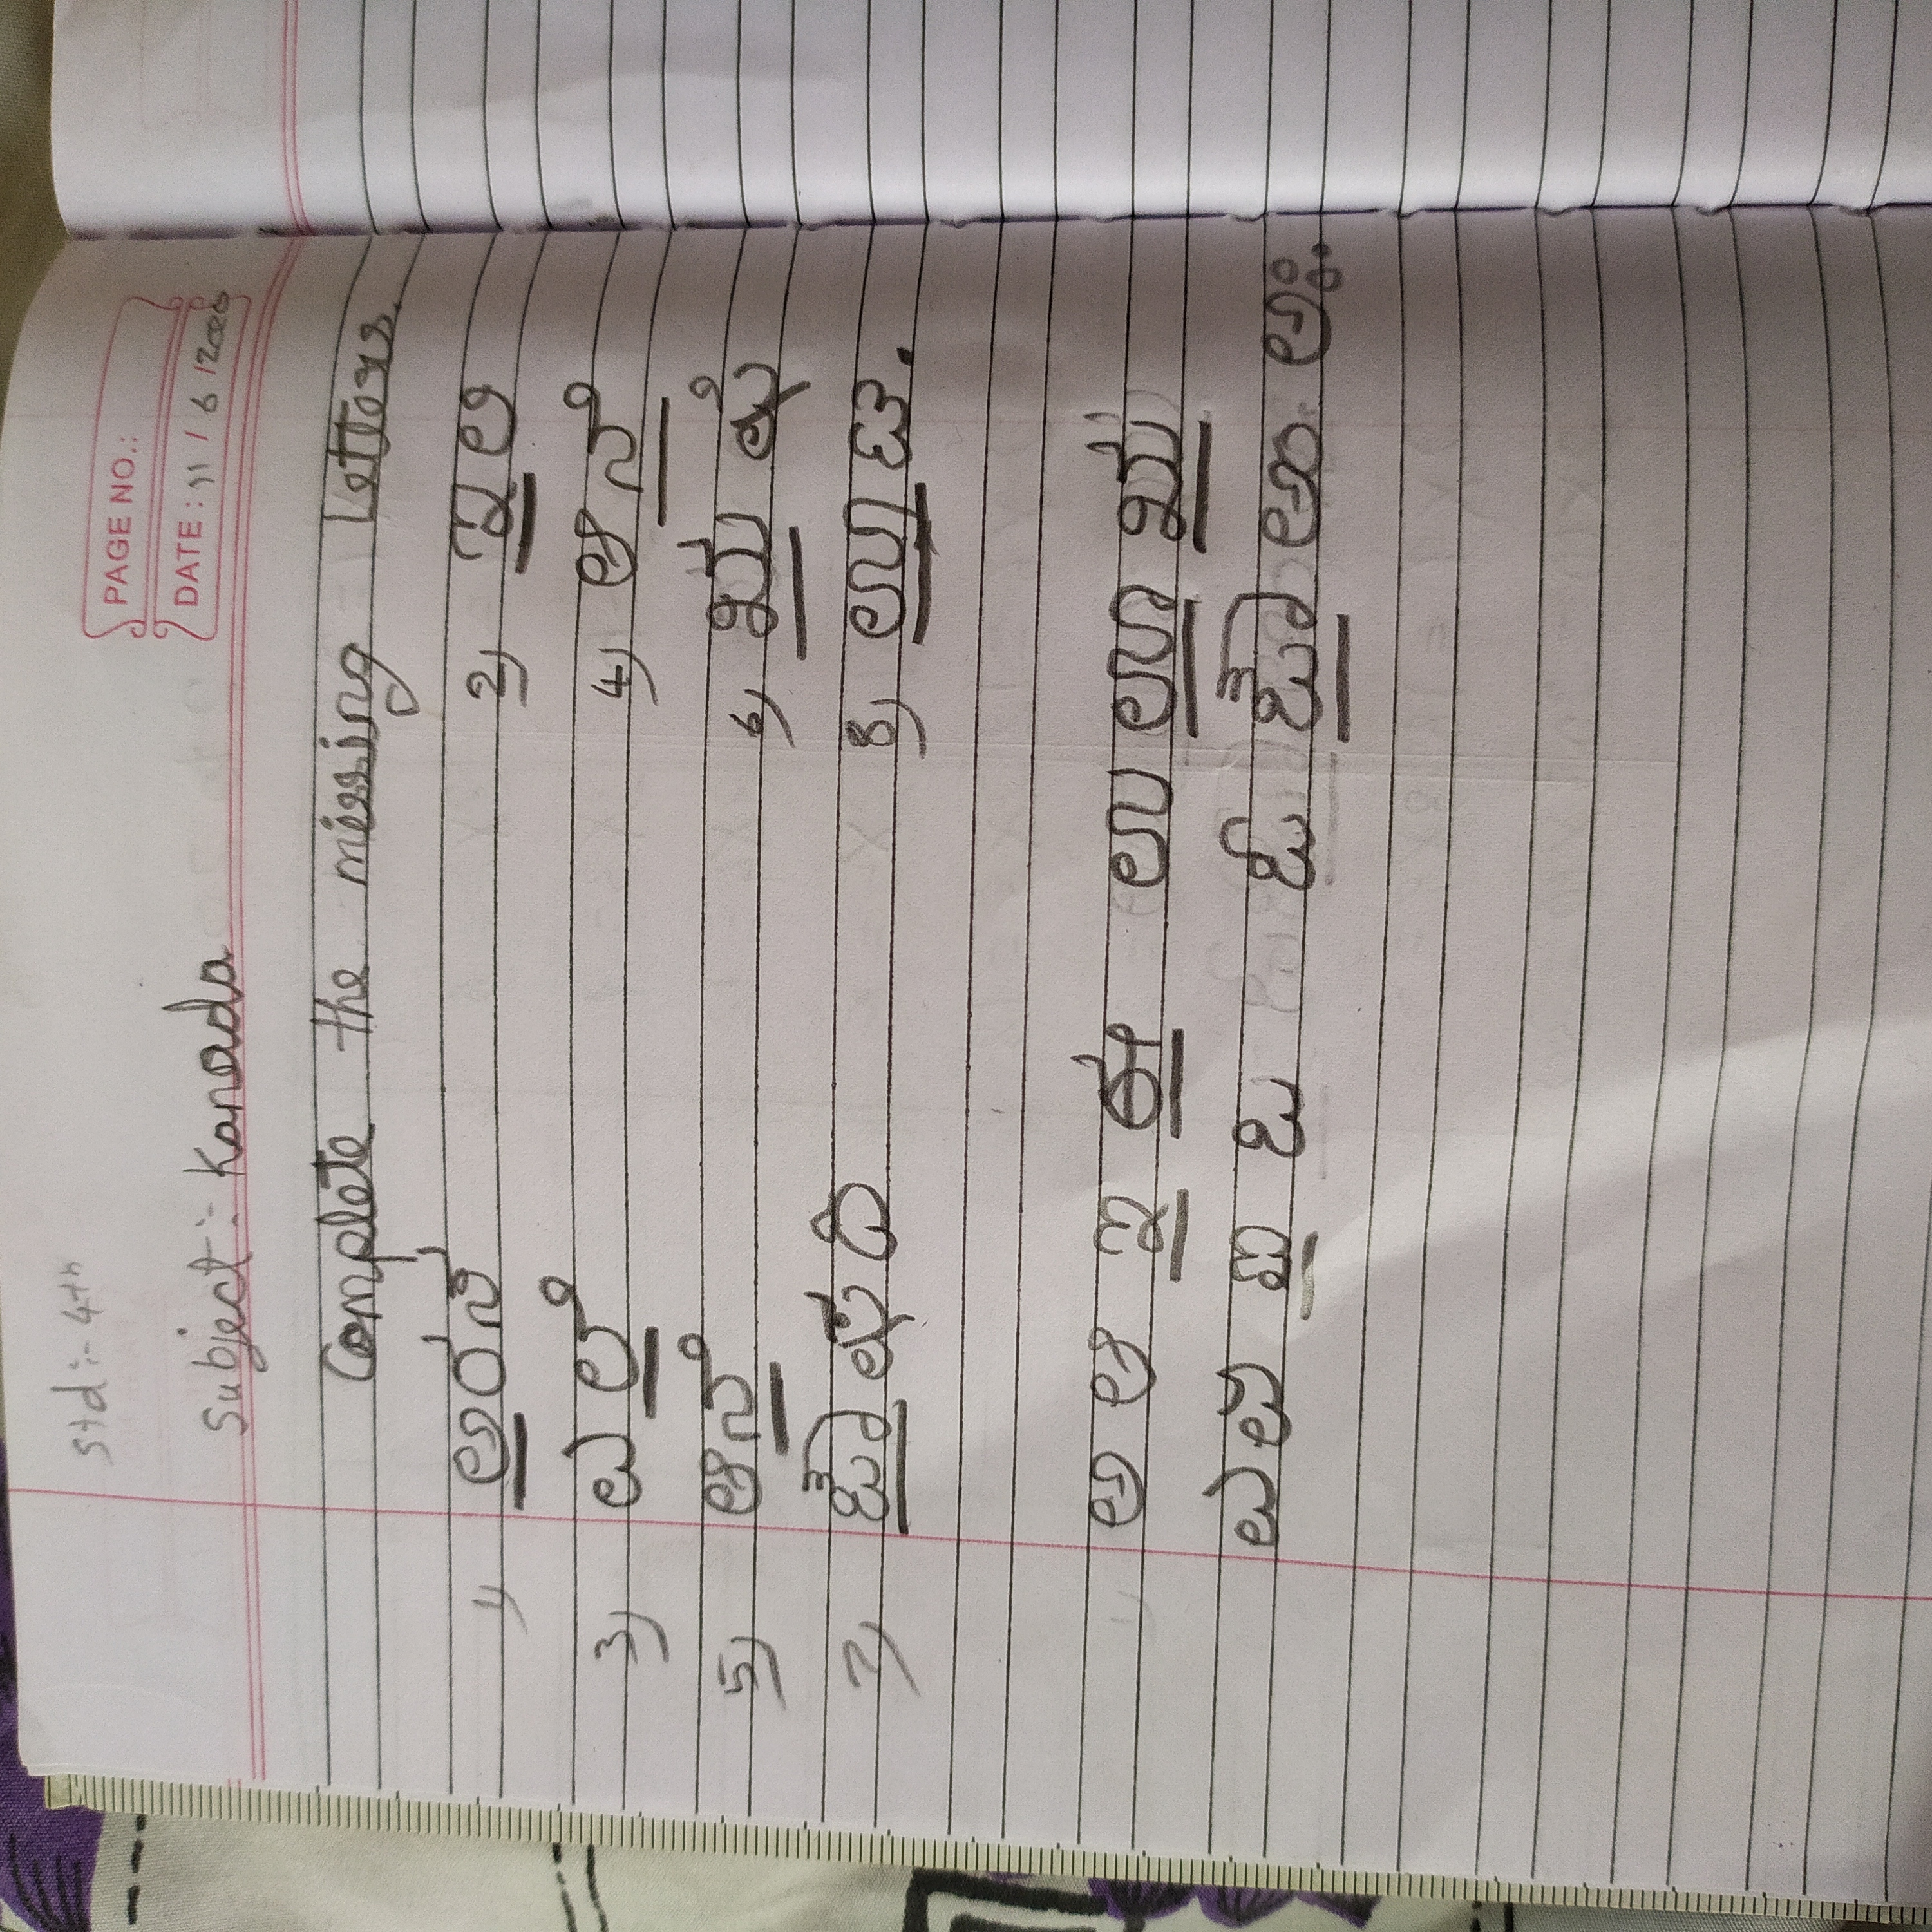 Std :- 4th
PAGE NO.:
Subject :- Kanada
DATE : 11 / 6 /
Complete the missing Letters.
1) ಅರಸ 2) ಇಲಿ
3) ಎಲೆ 4) ಆನೆ
5) ಆನೆ 6) ಋಷಿ
7) ಔಷಧಿ 8) ಊಟ.
ಅ ಆ ಇ ಈ ಉ ಊ ಋ
ಎ ಏ ಐ ಒ ಓ ಔ ಅಂ ಅಃ.